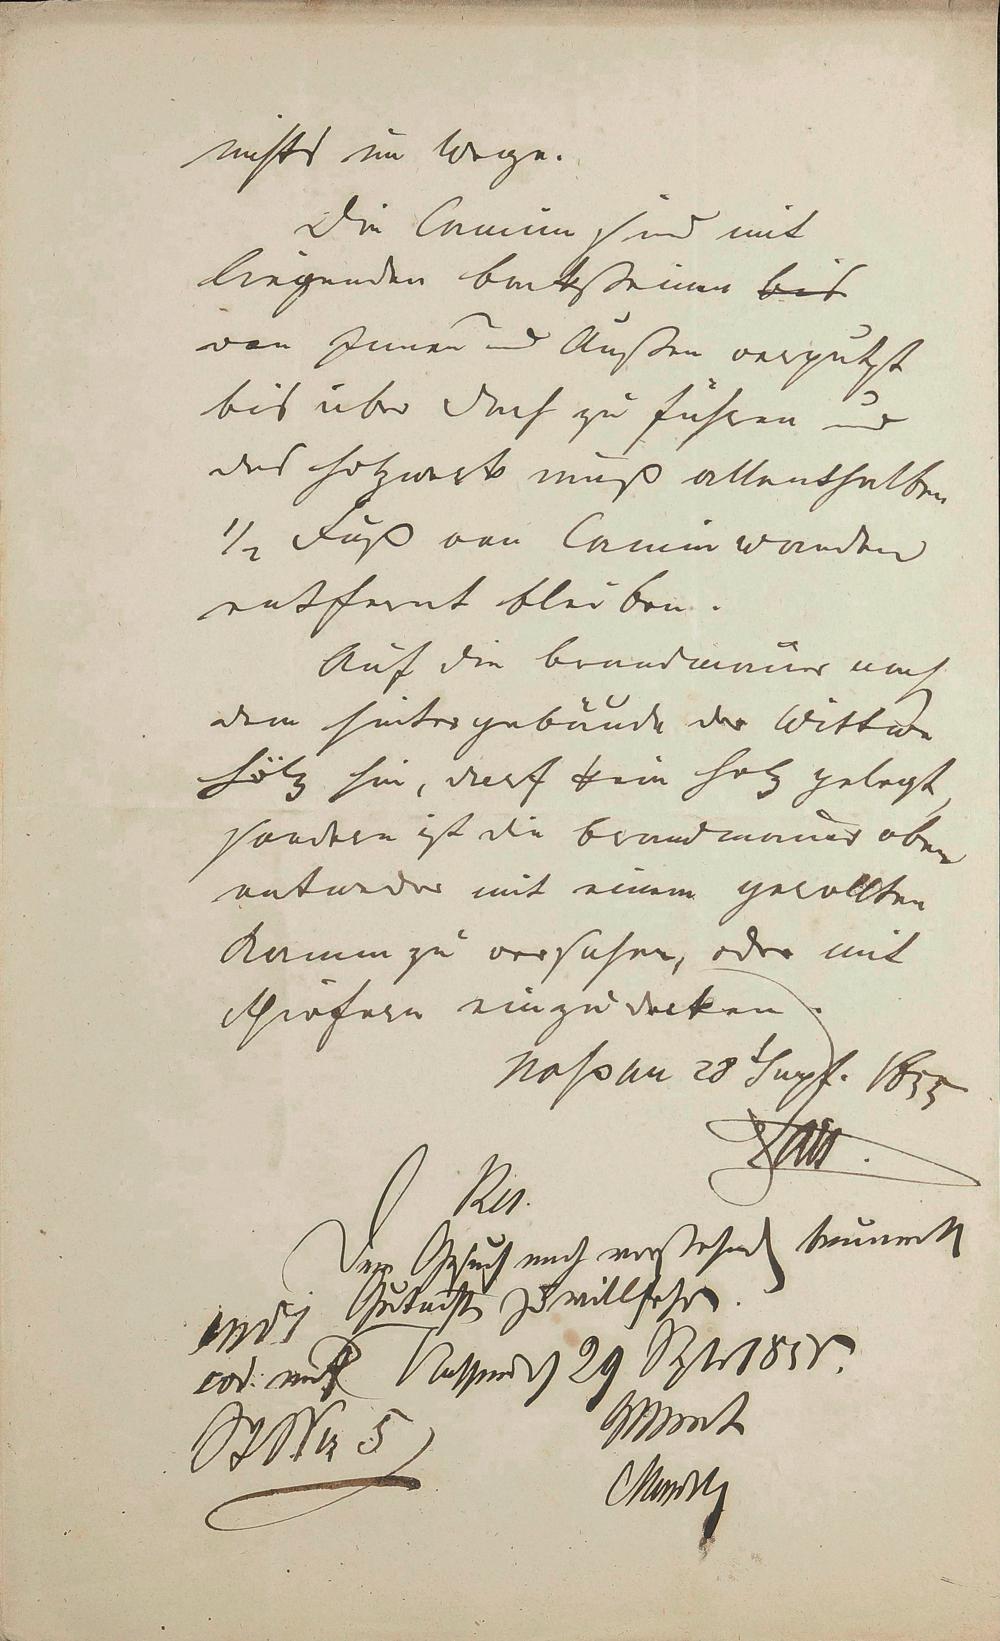 nichts im Wege.
Die Camine sind mit
liegenden Backsteinen bis
von Innen und Außen verputzt
bis über Dach zu führen und
das Holzwerk muß allenthalben
1/2 Fuß von Caminwanden
entfernt bleiben.
Auf die Brandmauer nach
dem Hintergebäude der Wittwe
Hölz hin, darf kein Holz gelegt,
sondern ist die Brandmauer oben
entweder mit einem gerollten
Kamm zu versehen, oder mit
Schiefern einzudecken.
Nassau 28t Sept. 1855
Res.
Dem Gesuch nach vorstehend
Gutachten zu willfahren.
29 1855.
No 5